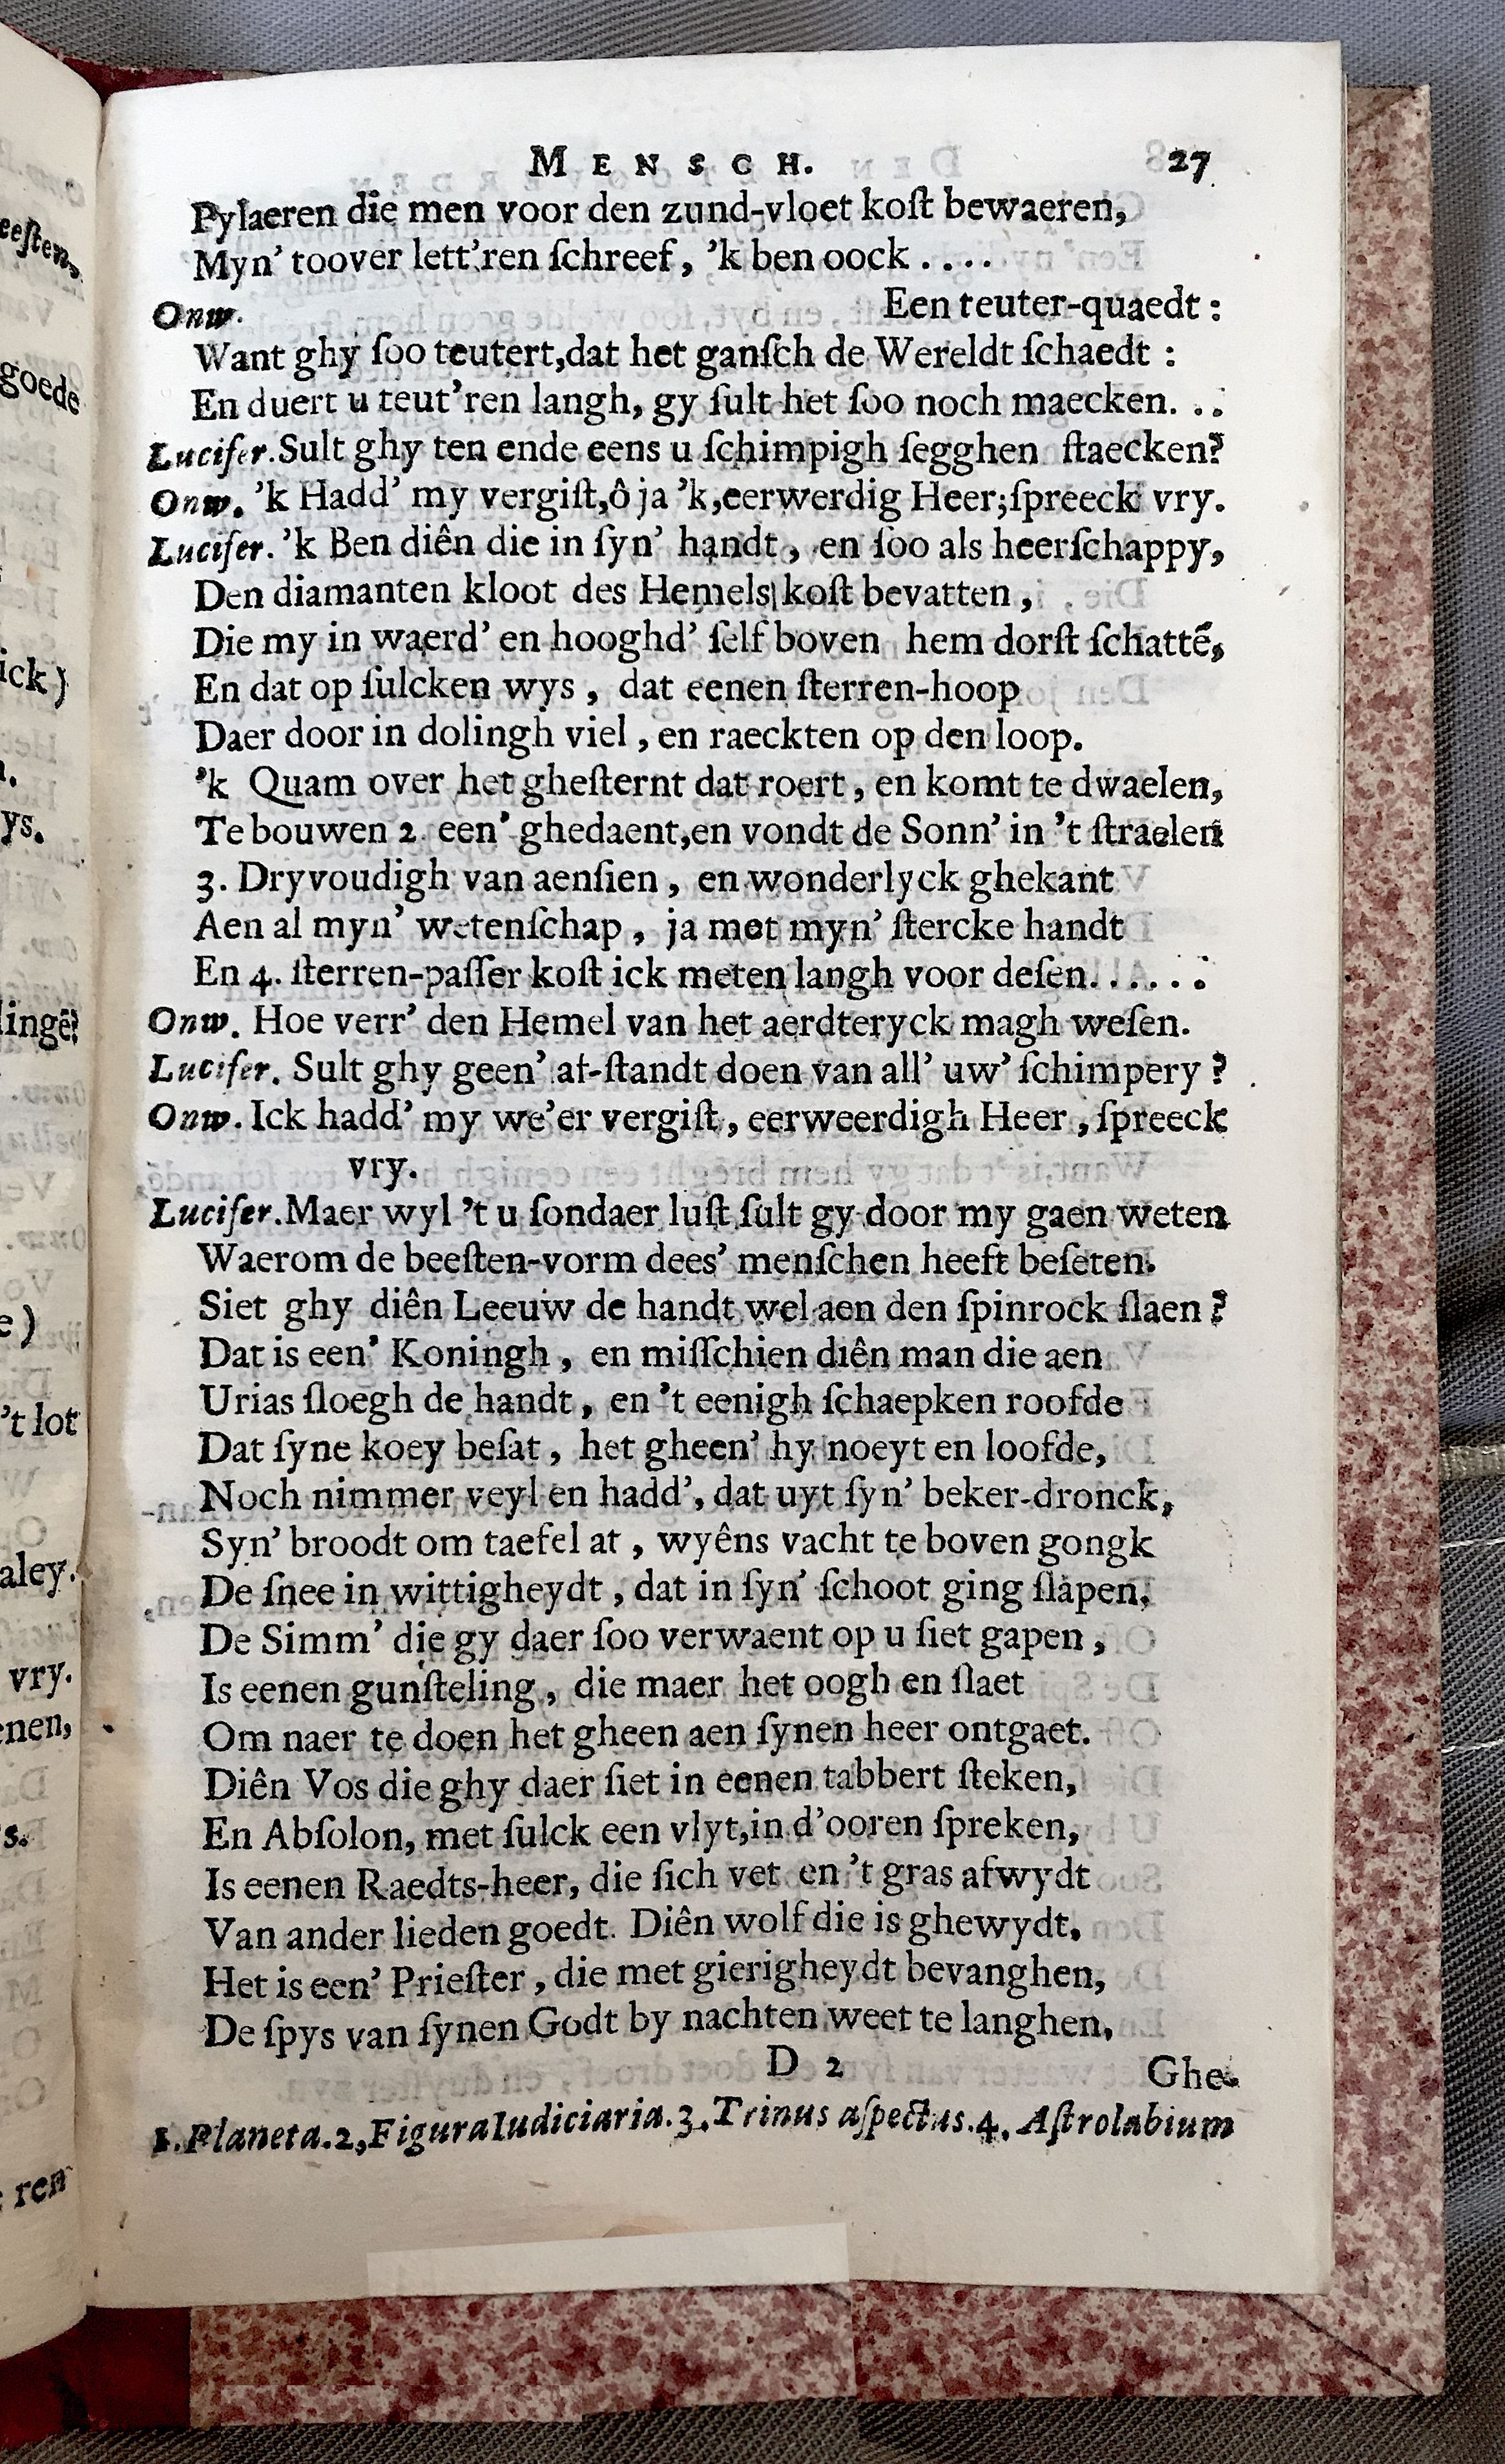 MENSCH. 27
Pylaeren die men voor den zund-vloet koſt bewaeren,
Myn' toover lett'ren ſchreef, 'k ben oock . . . .
Onw. Een teuter-quaedt :
Want ghy ſoo teutert,dat het ganſch de Wereldt ſchaedt :
En duert u teut'ren langh, gy ſult het ſoo noch maecken. . .
Lucifer.Sult ghy ten ende eens u ſchimpigh ſegghen ſtaecken?
Onw. 'k Hadd' my vergiſt,ô ja 'k,eerwerdig Heer;ſpreeck vry.
Lucifer. 'k Ben diên die in ſyn' handt, en ſoo als heerſchappy,
Den diamanten kloot des Hemels koſt bevatten,
Die my in waerd' en hooghd' ſelf boven hem dorſt ſchattē,
En dat op ſulcken wys, dat eenen ſterren-hoop
Daer door in dolingh viel, en raeckten op den loop.
'k Quam over het gheſternt dat roert, en komt te dwaelen,
Te bouwen 2. een' ghedaent,en vondt de Sonn' in 't ſtraelen
3. Dryvoudigh van aenſien, en wonderlyck ghekant
Aen al myn' wetenſchap, ja met myn' ſtercke handt
En 4. ſterren-paſſer koſt ick meten langh voor deſen. . . . . .
Onw. Hoe verr' den Hemel van het aerdteryck magh weſen.
Lucifer. Sult ghy geen' af-ſtandt doen van all' uw' ſchimpery ?
Onw. Ick hadd' my we'er vergiſt, eerweerdigh Heer, ſpreeck
vry.
Lucifer.Maer wyl 't u ſondaer luſt ſult gy door my gaen weten
Waerom de beeſten-vorm dees' menſchen heeft beſeten.
Siet ghy diên Leeuw de handt wel aen den ſpinrock ſlaen ?
Dat is een' Koningh, en miſſchien diên man die aen
Urias ſloegh de handt, en 't eenigh ſchaepken roofde
Dat ſyne koey beſat, het gheen' hy noeyt en loofde,
Noch nimmer veyl en hadd', dat uyt ſyn' beker-dronck,
Syn' broodt om taefel at, wyêns vacht te boven gongk
De ſnee in wittigheydt, dat in ſyn' ſchoot ging ſlapen,
De Simm' die gy daer ſoo verwaent op u ſiet gapen,
Is eenen gunſteling, die maer het oogh en ſlaet
Om naer te doen het gheen aen ſynen heer ontgaet.
Diên Vos die ghy daer ſiet in eenen tabbert ſteken,
En Abſolon, met ſulck een vlyt,in d'ooren ſpreken,
Is eenen Raedts-heer, die ſich vet en 't gras afwydt
Van ander lieden goedt. Diên wolf die is ghewydt,
Het is een' Prieſter, die met gierigheydt bevanghen,
De ſpys van ſynen Godt by nachten weet te langhen,
D 2 Ghe-
1.Planeta.2,Figura Iudiciaria.3.Trinus aſpectus.4. Aſtrolabium